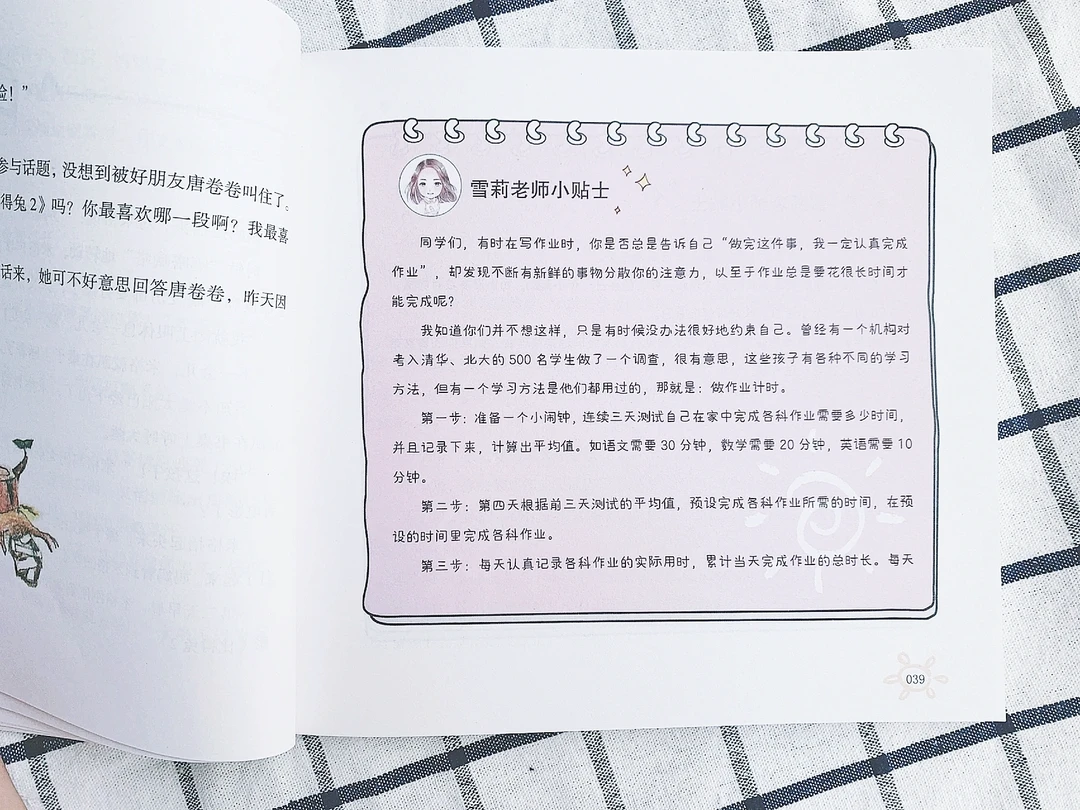 险！”
参与话题，没想到被好朋友唐卷卷叫住了。
得兔2》吗？你最喜欢哪一段啊？我最喜
话来，她可不好意思回答唐卷卷，昨天因
雪莉老师小贴士
同学们，有时在写作业时，你是否总是告诉自己“做完这件事，我一定认真完成
作业”，却发现不断有新鲜的事物分散你的注意力，以至于作业总是要花很长时间才
能完成呢？
我知道你们并不想这样，只是有时候没办法很好地约束自己。曾经有一个机构对
考入清华、北大的 500 名学生做了一个调查，很有意思，这些孩子有各种不同的学习
方法，但有一个学习方法是他们都用过的，那就是：做作业计时。
第一步：准备一个小闹钟，连续三天测试自己在家中完成各科作业需要多少时间，
并且记录下来，计算出平均值。如语文需要 30 分钟，数学需要 20 分钟，英语需要 10
分钟。
第二步：第四天根据前三天测试的平均值，预设完成各科作业所需的时间，在预
设的时间里完成各科作业。
第三步：每天认真记录各科作业的实际用时，累计当天完成作业的总时长。每天
039